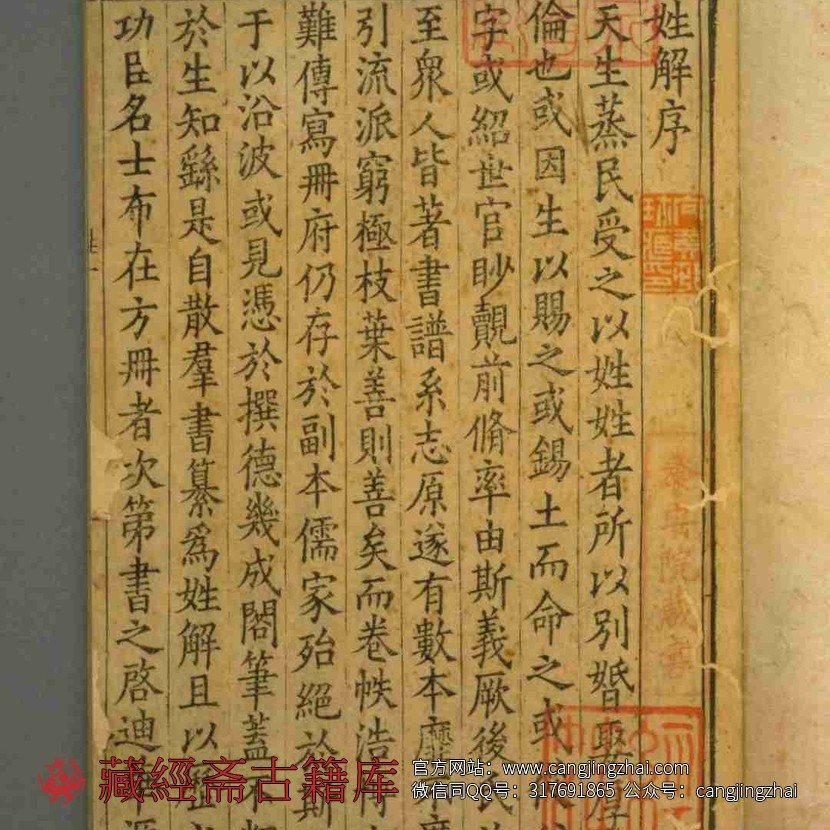 姓解序
天生蒸民受之以姓姓者所以別婚娶厚
倫也或因生以賜之或錫土而命之或
字或紹世官眇覿前脩率由斯義厥後氏
至衆人皆著書譜系志原遂有數本靡
引流派窮極枝葉善則善矣而卷帙浩
難傳寫冊府仍存於副本儒家殆絕於斯
于以沿波或見憑於撰德幾成閣筆蓋不
於生知繇是自散羣書纂爲姓解且以
功臣名士布在方冊者次第書之啓迪
秦宮院藏書
藏經斋古籍库
官方网站：www.cangjingzhai.com
微信同QQ号：317691865 公众号：cangjingzhai